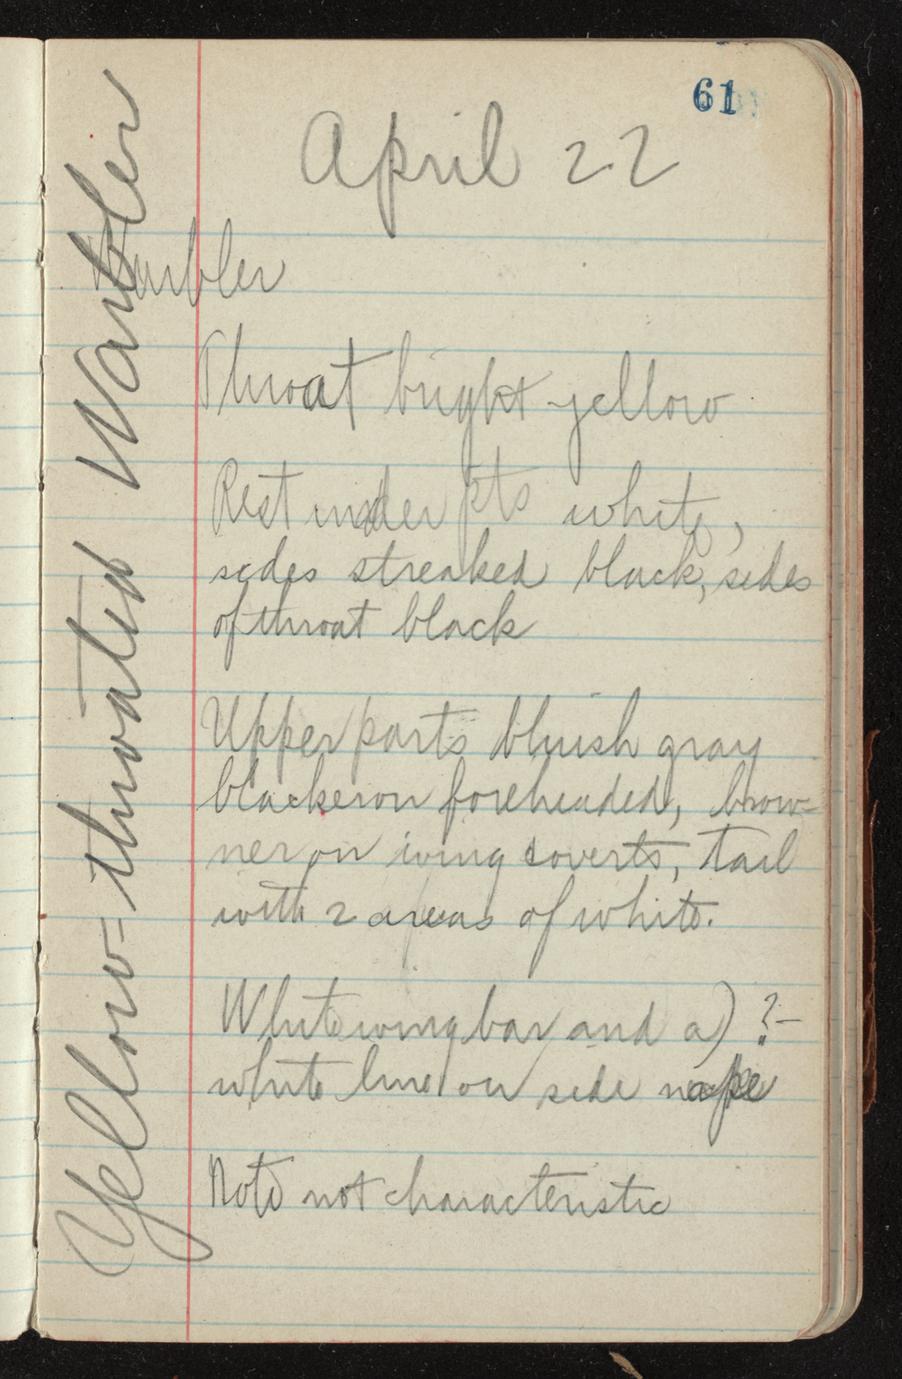 61
April 22
Warbler
Throat bright yellow
Rest under pts white,
sides streaked black, sides
of throat black
Upper parts bluish gray
blacker on foreheaded, brow=
ner on wing coverts, tail
with 2 areas of white.
White wing bar and a) ?-
white line on side nape
Note not characteristic
Yellow=throated Warbler